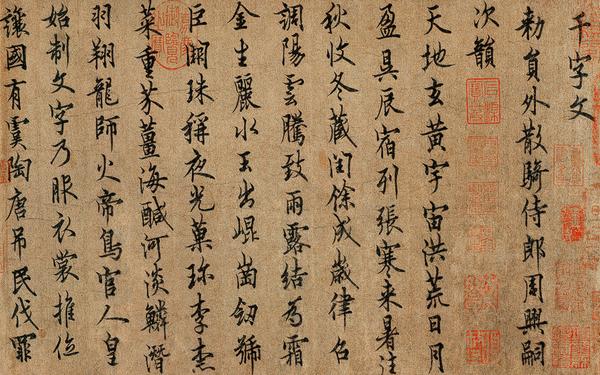 千字文
勅員外散騎侍郎周興嗣
次韻
天地玄黃宇宙洪荒日月
盈昃辰宿列張寒来暑往
秋收冬藏閏餘成歲律召
調陽雲騰致雨露結為霜
金生麗水玉出崐崗劔號
巨闕珠稱夜光菓珎李柰
菜重芥薑海鹹河淡鱗潛
羽翔龍師火帝鳥官人皇
始制文字乃服衣裳推位
讓國有虞陶唐吊民伐罪